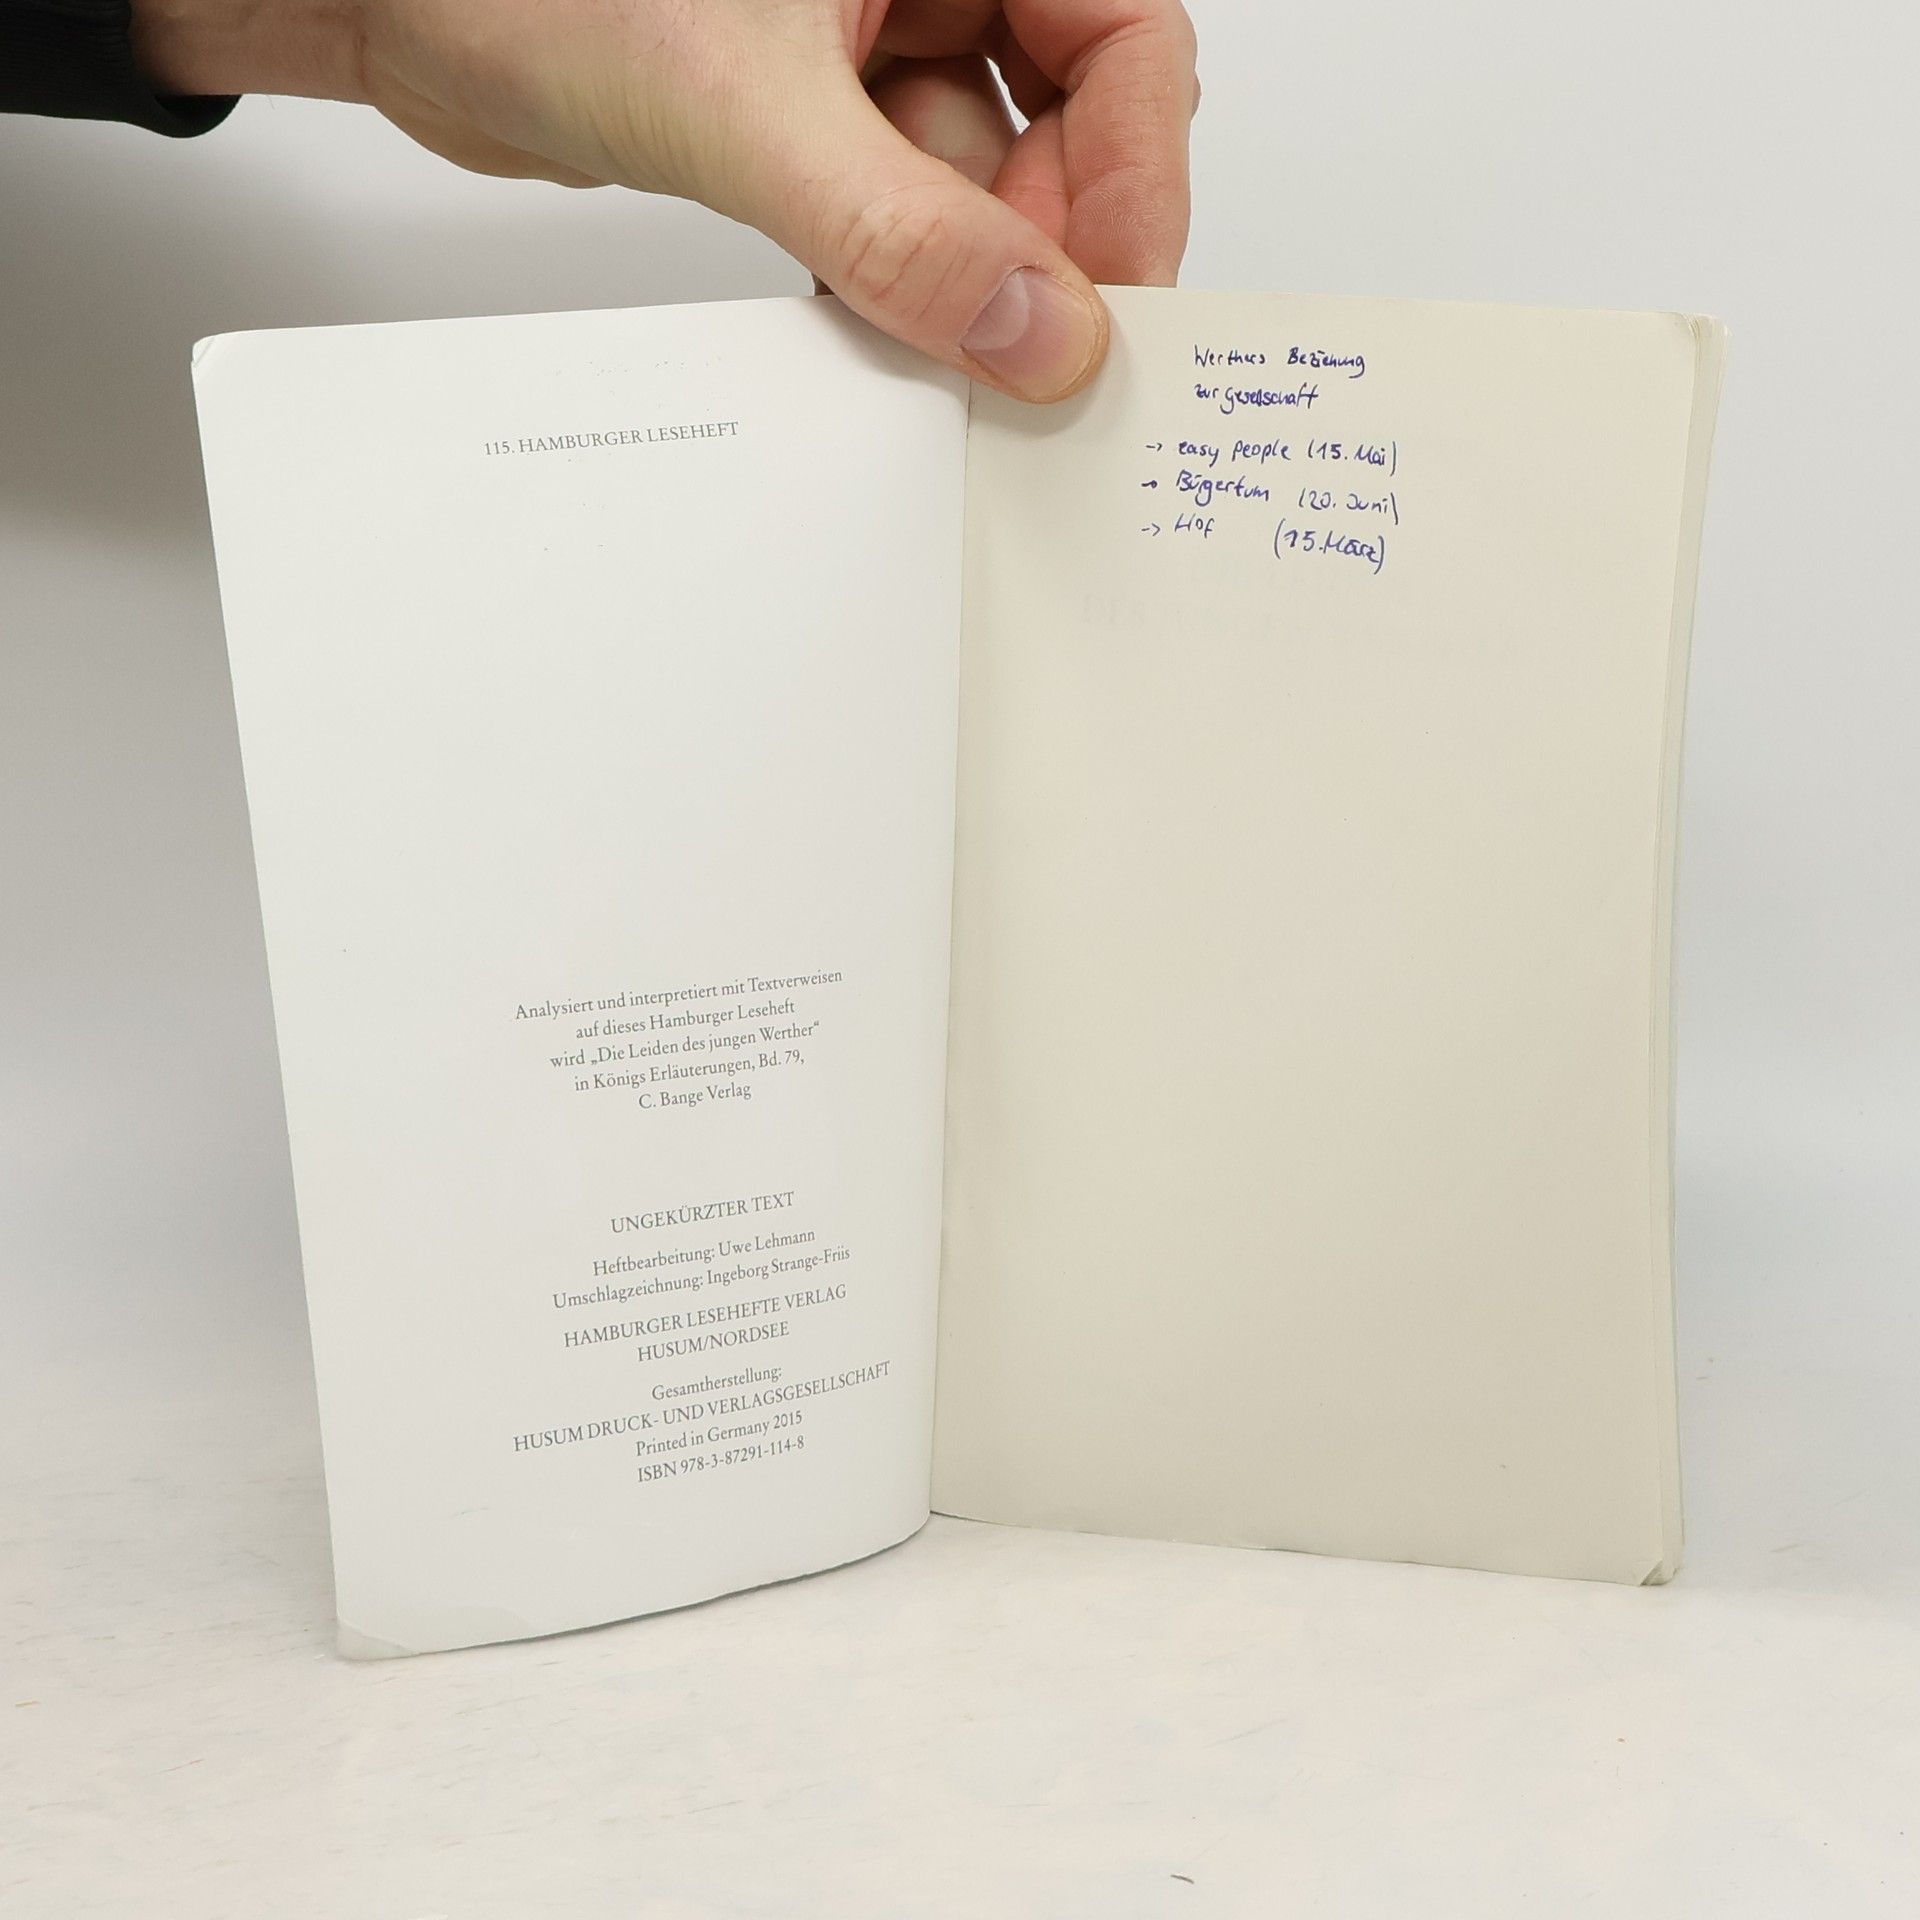 115. HAMBURGER LESEHEFT
Analysiert und interpretiert mit Textverweisen
auf dieses Hamburger Leseheft
wird „Die Leiden des jungen Werther“
in Königs Erläuterungen, Bd. 79,
C. Bange Verlag
UNGEKÜRZTER TEXT
Heftbearbeitung: Uwe Lehmann
Umschlagzeichnung: Ingeborg Strange-Friis
HAMBURGER LESEHEFTE VERLAG
HUSUM/NORDSEE
Gesamtherstellung:
HUSUM DRUCK- UND VERLAGSGESELLSCHAFT
Printed in Germany 2015
ISBN 978-3-87291-114-8
Werthers Beziehung
zur Gesellschaft
-> easy people (15. Mai)
-> Bürgertum (20. Juni)
-> Hof (15. März)